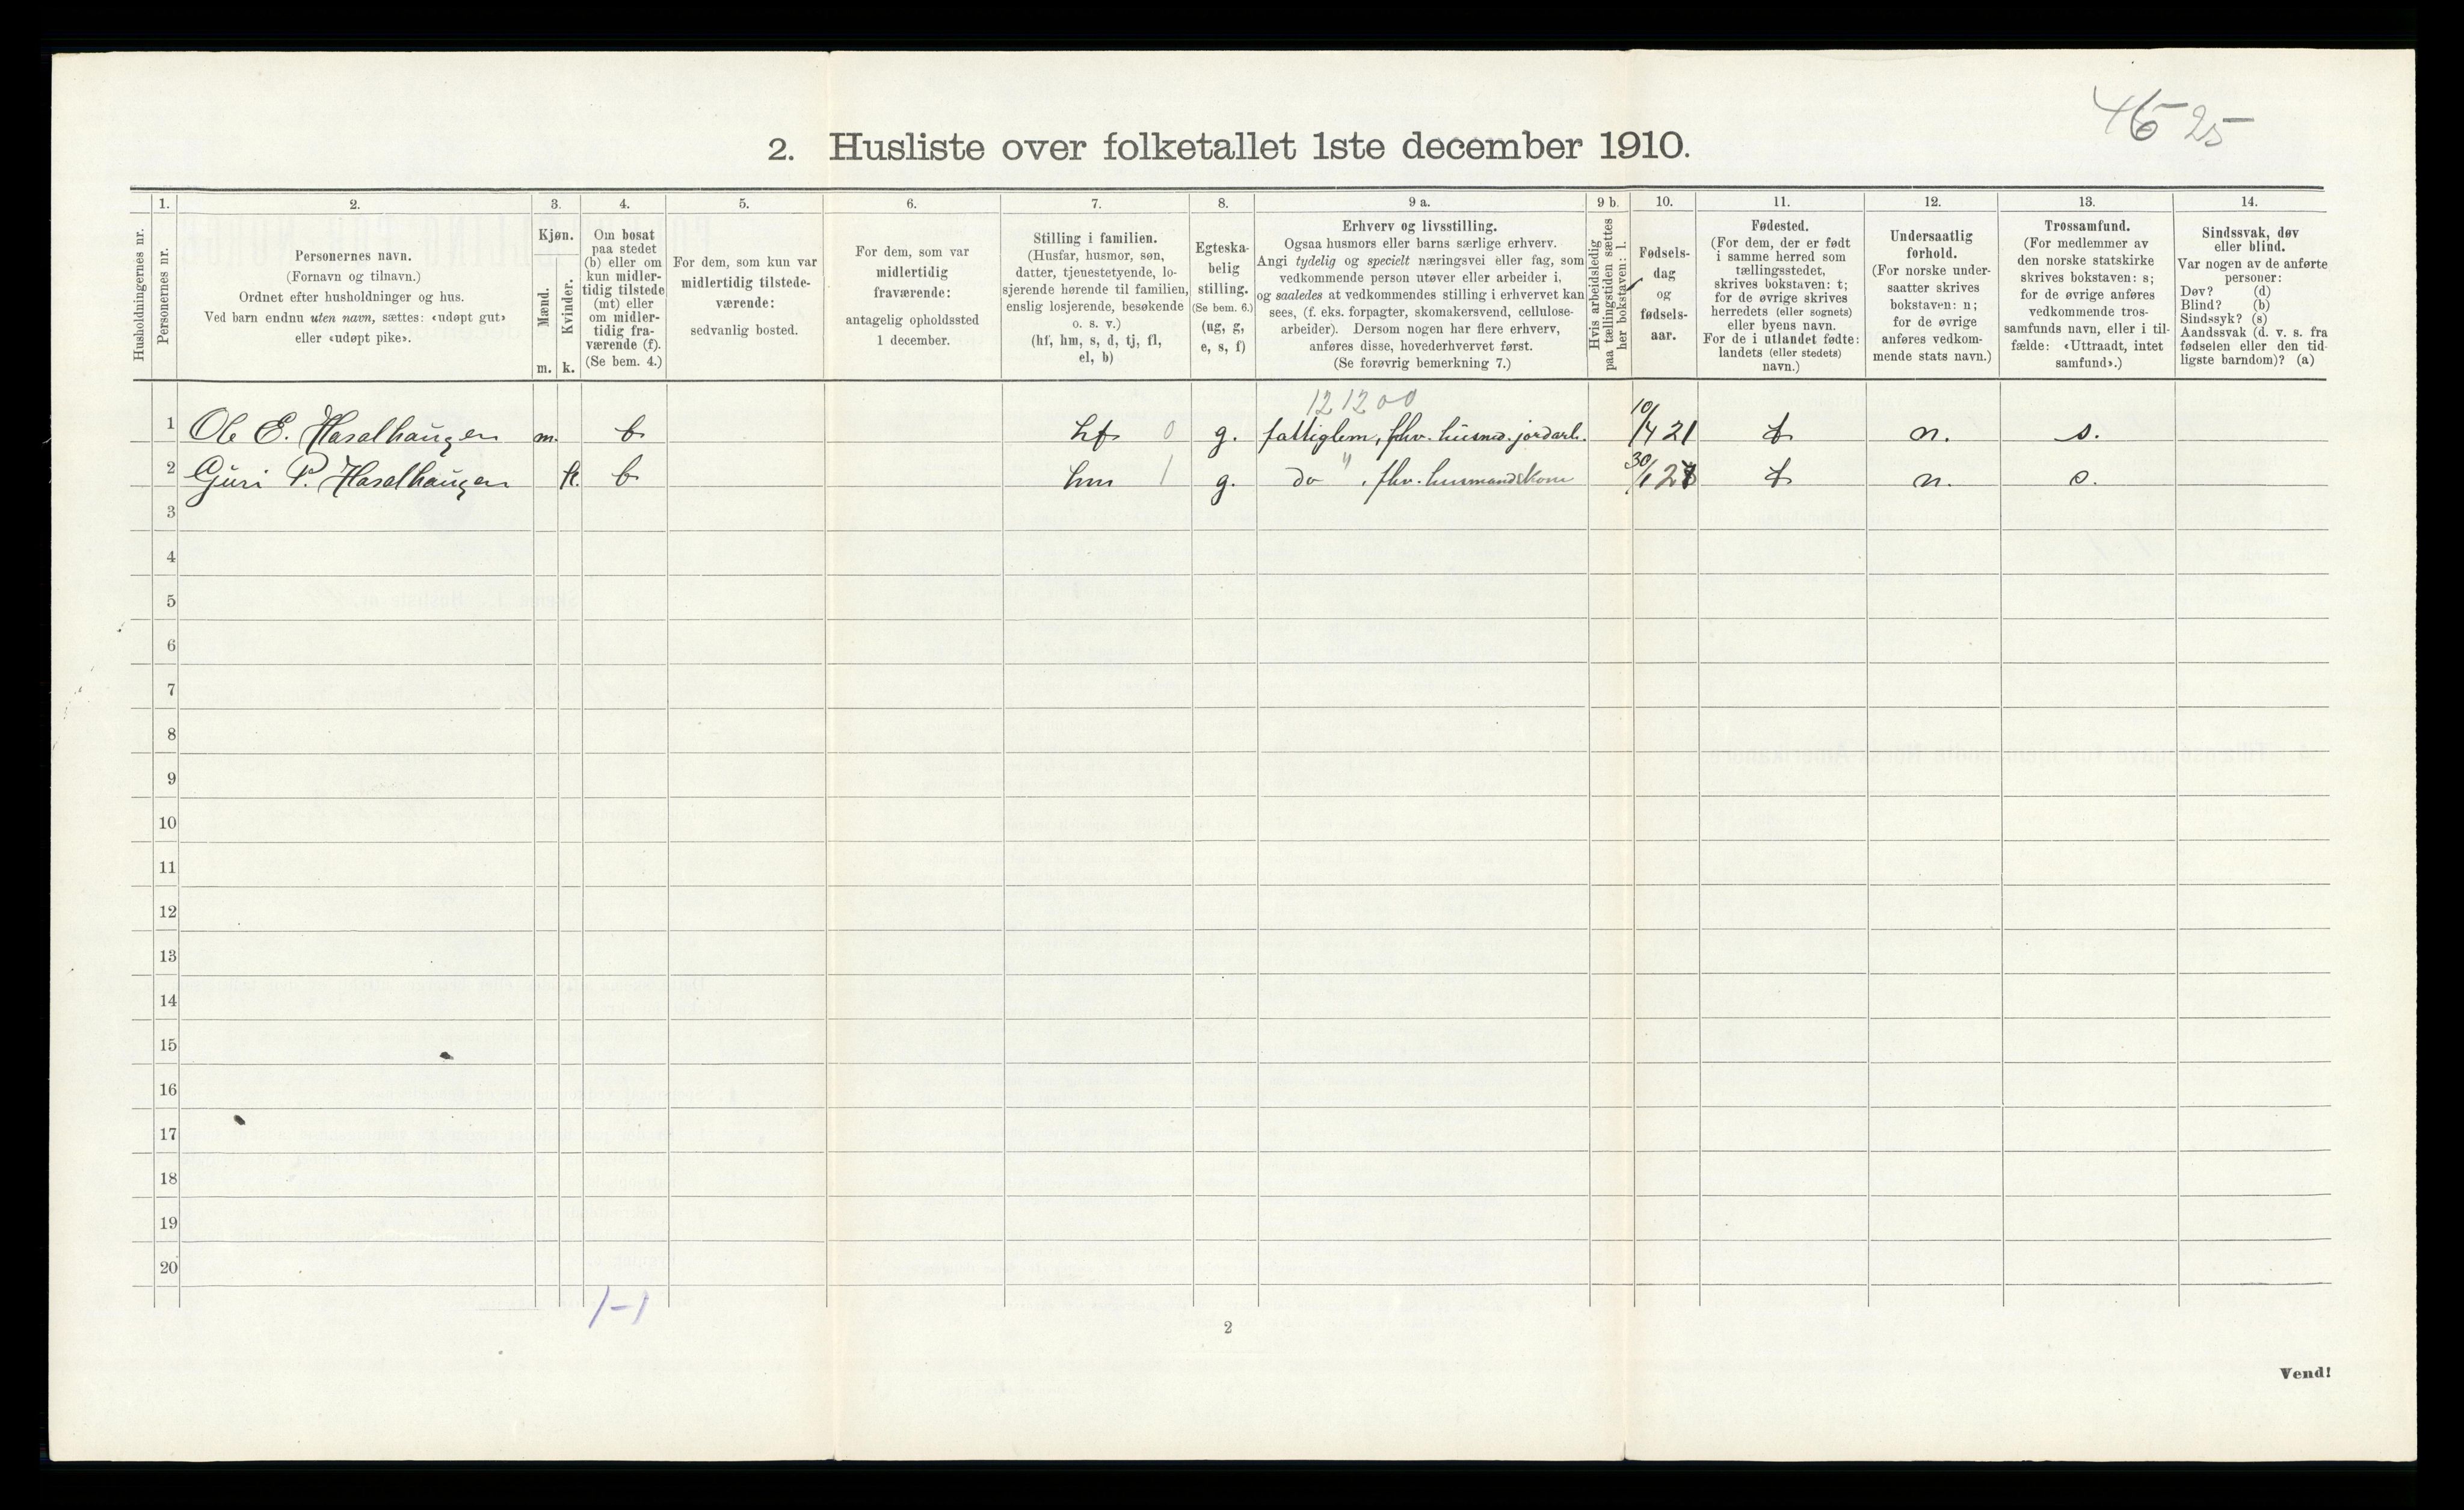 46 25
2. Husliste over folketallet 1ste december 1910.
Husholdningernes nr.
1.
Personernes nr.
2.
Personernes navn.
(Fornavn og tilnavn.)
Ordnet efter husholdninger og hus.
Ved barn endnu uten navn, sættes: «udøpt gut»
eller «udøpt pike».
3.
Kjøn.
Mænd.
Kvinder.
m. k.
4.
Om bosat
paa stedet
(b) eller om
kun midler-
tidig tilstede
(mt) eller
om midler-
tidig fra-
værende (f).
(Se bem. 4.)
5.
For dem, som kun var
midlertidig tilstede-
værende:
sedvanlig bosted.
6.
For dem, som var
midlertidig
fraværende:
antagelig opholdssted
1 december.
7.
Stilling i familien.
(Husfar, husmor, søn,
datter, tjenestetyende, lo-
sjerende hørende til familien,
enslig losjerende, besøkende
o. s. v.)
(hf, hm, s, d, tj, fl,
el, b)
8.
Egteska-
belig
stilling.
(Se bem. 6.)
(ug, g,
e, s, f)
9 a.
Erhverv og livsstilling.
Ogsaa husmors eller barns særlige erhverv.
Angi tydelig og specielt næringsvei eller fag, som
vedkommende person utøver eller arbeider i,
og saaledes at vedkommendes stilling i erhvervet kan
sees, (f. eks. forpagter, skomakersvend, cellulose-
arbeider). Dersom nogen har flere erhverv,
anføres disse, hovederhvervet først.
(Se forøvrig bemerkning 7.)
9 b.
Hvis arbeidsledig
paa tællingstiden sættes
her bokstaven: l.
10.
Fødsels-
dag
og
fødsels-
aar.
11.
Fødested.
(For dem, der er født
i samme herred som
tællingsstedet,
skrives bokstaven: t;
for de øvrige skrives
herredets (eller sognets)
eller byens navn.
For de i utlandet fødte:
landets (eller stedets)
navn.)
12.
Undersaatlig
forhold.
(For norske under-
saatter skrives
bokstaven: n;
for de øvrige
anføres vedkom-
mende stats navn.)
13.
Trossamfund.
(For medlemmer av
den norske statskirke
skrives bokstaven: s;
for de øvrige anføres
vedkommende tros-
samfunds navn, eller i til-
fælde: «Uttraadt, intet
samfund».)
14.
Sindssvak, døv
eller blind.
Var nogen av de anførte
personer:
Døv? (d)
Blind? (b)
Sindssyk? (s)
Aandssvak (d. v. s. fra
fødselen eller den tid-
ligste barndom)? (a)
121200
1 Ole E. Haselhaugen m. b hf 0 g. fattiglem, fhv. husmd. jordarb. 10/4 21 t n. s.
2 Guri P. Haselhaugen k. b hm 1 g. do " , fhv. husmandskone 30/1 27 t n. s.
3
4
5
6
7
8
9
10
11
12
13
14
15
16
17
18
19
20
1-1
2
Vend!